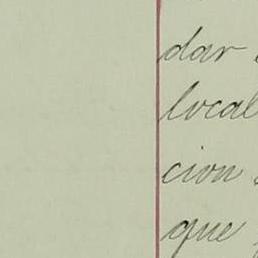 dar
local
cion
que